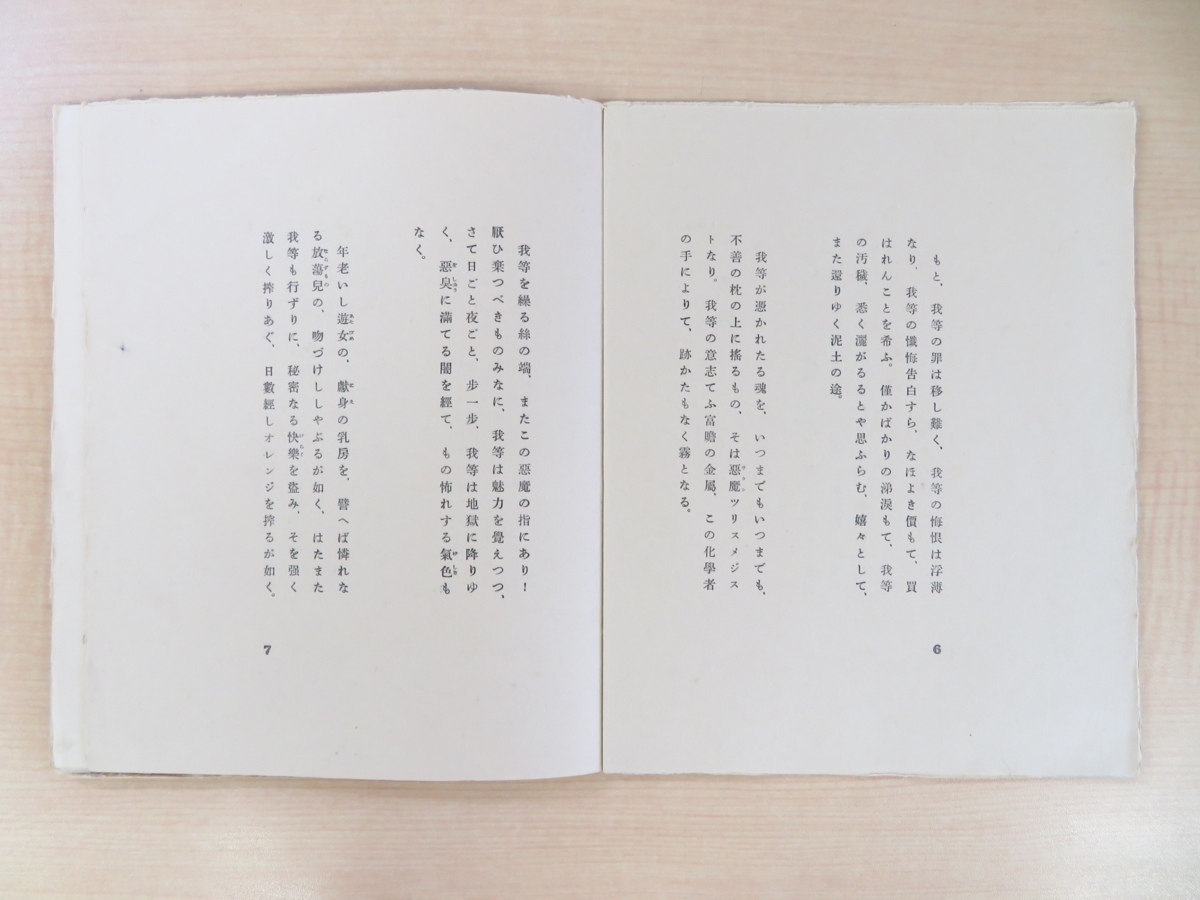 もと、我等の罪は移し難く、我等の悔恨は浮薄
なり、我等の懺悔告白すら、なほよき價もて、買
はれんことを希ふ。僅かばかりの涕涙もて、我等
の汚穢、悉く灑がるるとや思ふらむ、嬉々として、
また還りゆく泥土の途。
我等が憑かれたる魂を、いつまでもいつまでも、
不善の枕の上に搖るもの、そは惡魔ツリスメジス
トなり。我等の意志てふ富贍の金屬、この化學者
の手によりて、跡かたもなく霧となる。
6
我等を繰る絲の端、またこの惡魔の指にあり!
厭ひ棄つべきものみなに、我等は魅力を覺えつつ、
さて日ごと夜ごと、歩一歩、我等は地獄に降りゆ
く、惡臭に滿てる闇を經て、もの怖れする氣色も
なく。
年老いし遊女の、獻身の乳房を、譬へば憐れな
る放蕩兒の、吻づけししやぶるが如く、はたまた
我等も行ずりに、秘密なる快樂を盜み、そを強く
激しく搾りあぐ、日數經しオレンジを搾るが如く。
7